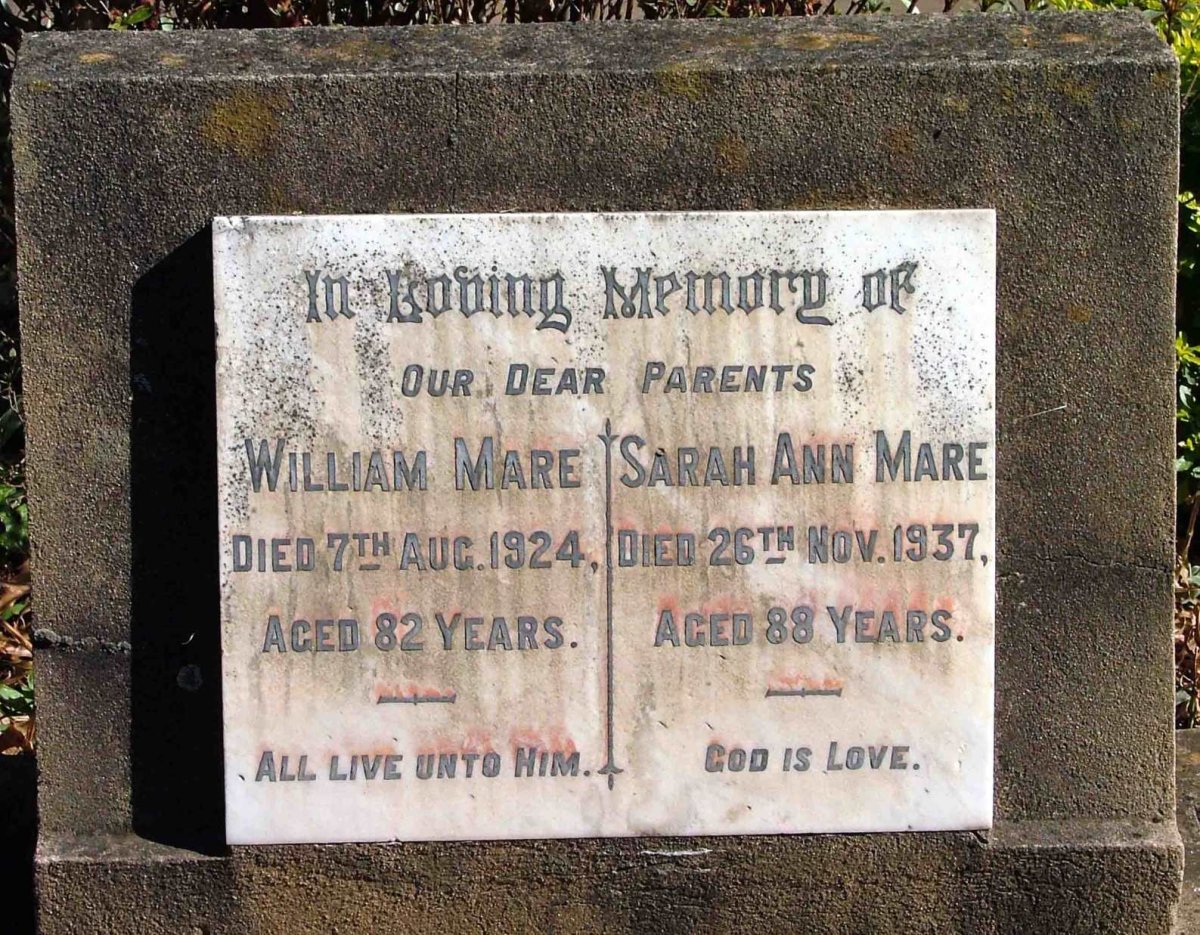 In Loving Memory of
OUR DEAR PARENTS
WILLIAM MARE
DIED 7TH AUG. 1924,
AGED 82 YEARS.
ALL LIVE UNTO HIM.
SARAH ANN MARE
DIED 26TH NOV. 1937,
AGED 88 YEARS.
GOD IS LOVE.